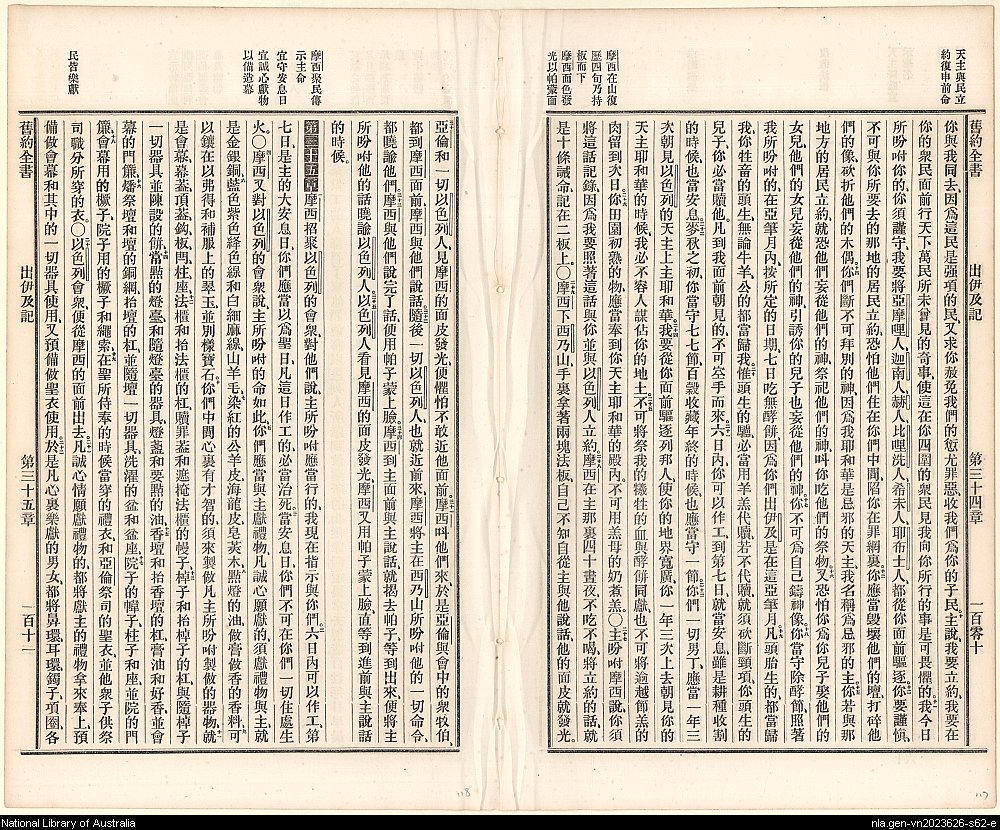 天主與民立
約復申前命
摩西在山復
歷四旬乃持
板而下
摩西面色發
光以帕蒙面
舊約全書
出伊及記
第三十四章
一百零十
你與我同去、因爲這民是强項的民、又求你赦免我們的愆尤罪惡、收我們爲你的子民、主說、我要立約、我要在
你的衆民面前行天下萬民所未曾見的奇事、使這在你四圍的衆民見我向你所行的事、是可畏懼的、我今日
所吩咐你的、你須謹守、我要將亞摩哩人、迦南人、赫人、比哩洗人、希未人、耶布士人、都從你面前驅逐、你要謹愼、
不可與你所要去的那地的居民立約、恐怕他們住在你們中間、陷你在罪網裏、你應當毀壞他們的壇、打碎他
們的像、砍折他們的木偶、你們斷不可拜別的神、因爲我耶和華是忌邪的天主、我名稱爲忌邪的主、你若與那
地方的居民立約、就恐他們妄從他們的神、祭祀他們的神、叫你吃他們的祭物、又恐怕你爲你兒子娶他們的
女兒、他們的女兒妄從他們的神、引誘你的兒子也妄從他們的神、你不可爲自己鑄神像、你當守除酵節、照著
我所吩咐的、在亞筆月內、按所定的日期、七日吃無酵餅、因爲你們出伊及是在這亞筆月、凡頭胎生的、都當歸
我、你牲畜的頭生、無論牛羊、公的都當歸我、惟頭生的驢、必當用羊羔代贖、若不代贖、就須砍斷頸項、你頭生的
兒子、你必當贖他、凡到我面前朝見的、不可空手而來、六日內你可以作工、到第七日就當安息、雖是耕種收割
的時候、也當安息、麥秋之初、你當守七七節、百穀收藏年終的時候、也應當守一節、你們一切男丁、應當一年三
次朝見以色列的天主主耶和華、我要從你面前驅逐列邦人、使你的地界寬廣、你一年三次上去朝見你的
天主耶和華的時候、我必不容人謀佔你的地土、不可將祭我的犧牲的血與酵餅同獻、也不可將逾越節羔的
肉留到次日、你田園初熟的物、應當奉到你天主耶和華的殿內、不可用羔母的奶煮羔、○主吩咐摩西說、你須
將這話記錄、因爲我要照著這話與你並與以色列人立約、摩西在主那裏四十晝夜、不吃不喝、將立約的話、就
是十條誡命、記在二板上、○摩西下西乃山、手裏拿著兩塊法板、自己不知自從主與他說話、他的面皮就發光。
摩西聚民傳
示主命
宜守安息日
宜誠心獻物
以備造幕
民皆樂獻
亞倫和一切以色列人見摩西的面皮發光、便懼怕不敢近他面前、摩西叫他們來、於是亞倫與會中的衆牧伯、
都到摩西面前、摩西與他們說話、隨後一切以色列人也就近前來、摩西將主在西乃山所吩咐他的一切命令、
都曉諭他們、摩西與他們說完了話、便用帕子蒙上臉、摩西到主面前與主說話、就揭去帕子、等到出來、便將主
所吩咐他的話曉諭以色列人、以色列人看見摩西的面皮發光、摩西又用帕子蒙上臉、直等到進前與主說話
的時候。
第三十五章 摩西招聚以色列的會衆、對他們說、主所吩咐應當行的、我現在指示與你們、六日內可以作工、第
七日是主的大安息日、你們應當以爲聖日、凡這日作工的、必當治死、當安息日、你們不可在你們一切住處生
火、○摩西又對以色列的會衆說、主所吩咐的命如此、你們應當與主獻禮物、凡誠心願獻的、須獻禮物與主、就
是金銀銅、藍色紫色絳色線、和白細麻線、山羊毛、染紅的公羊皮、海龍皮、皂莢木、點燈的油、做膏做香的香料、可
以鑲在以弗得和補服上的翠玉、並別樣寶石、你們中間心裏有才智的、須來製做凡主所吩咐製做的器物、就
是會幕、幕蓋、頂蓋、鈎、板、閂、柱、座、法櫃和抬法櫃的杠、贖罪蓋和遮掩法櫃的幔子、棹子和抬棹子的杠、與隨棹子
一切器具、並陳設的餅、當點的燈臺和隨燈臺的器具、燈盞和要點的油、香壇和抬香壇的杠、膏油和好香、並會
幕的門簾、燔祭壇和壇的銅網、抬壇的杠、並隨壇一切器具、洗濯的盆和盆座、院子的幃子、柱子和座、並院的門
簾、會幕用的橛子、院子用的橛子和繩索、在聖所侍奉的時候當穿的禮衣、和亞倫祭司的聖衣、並他衆子供祭
司職分所穿的衣、○以色列的會衆、便從摩西的面前出去、凡誠心情願獻禮物的、都將獻主的禮物拿來奉上、預
備做會幕和其中的一切器具使用、又預備做聖衣使用、於是凡心裏樂獻的男女、都將鼻環、耳環、鐲子、項圈、各
舊約全書
出伊及記
第三十五章
一百十一
118
117
National Library of Australia
nla.gen-vn2023626-s62-e